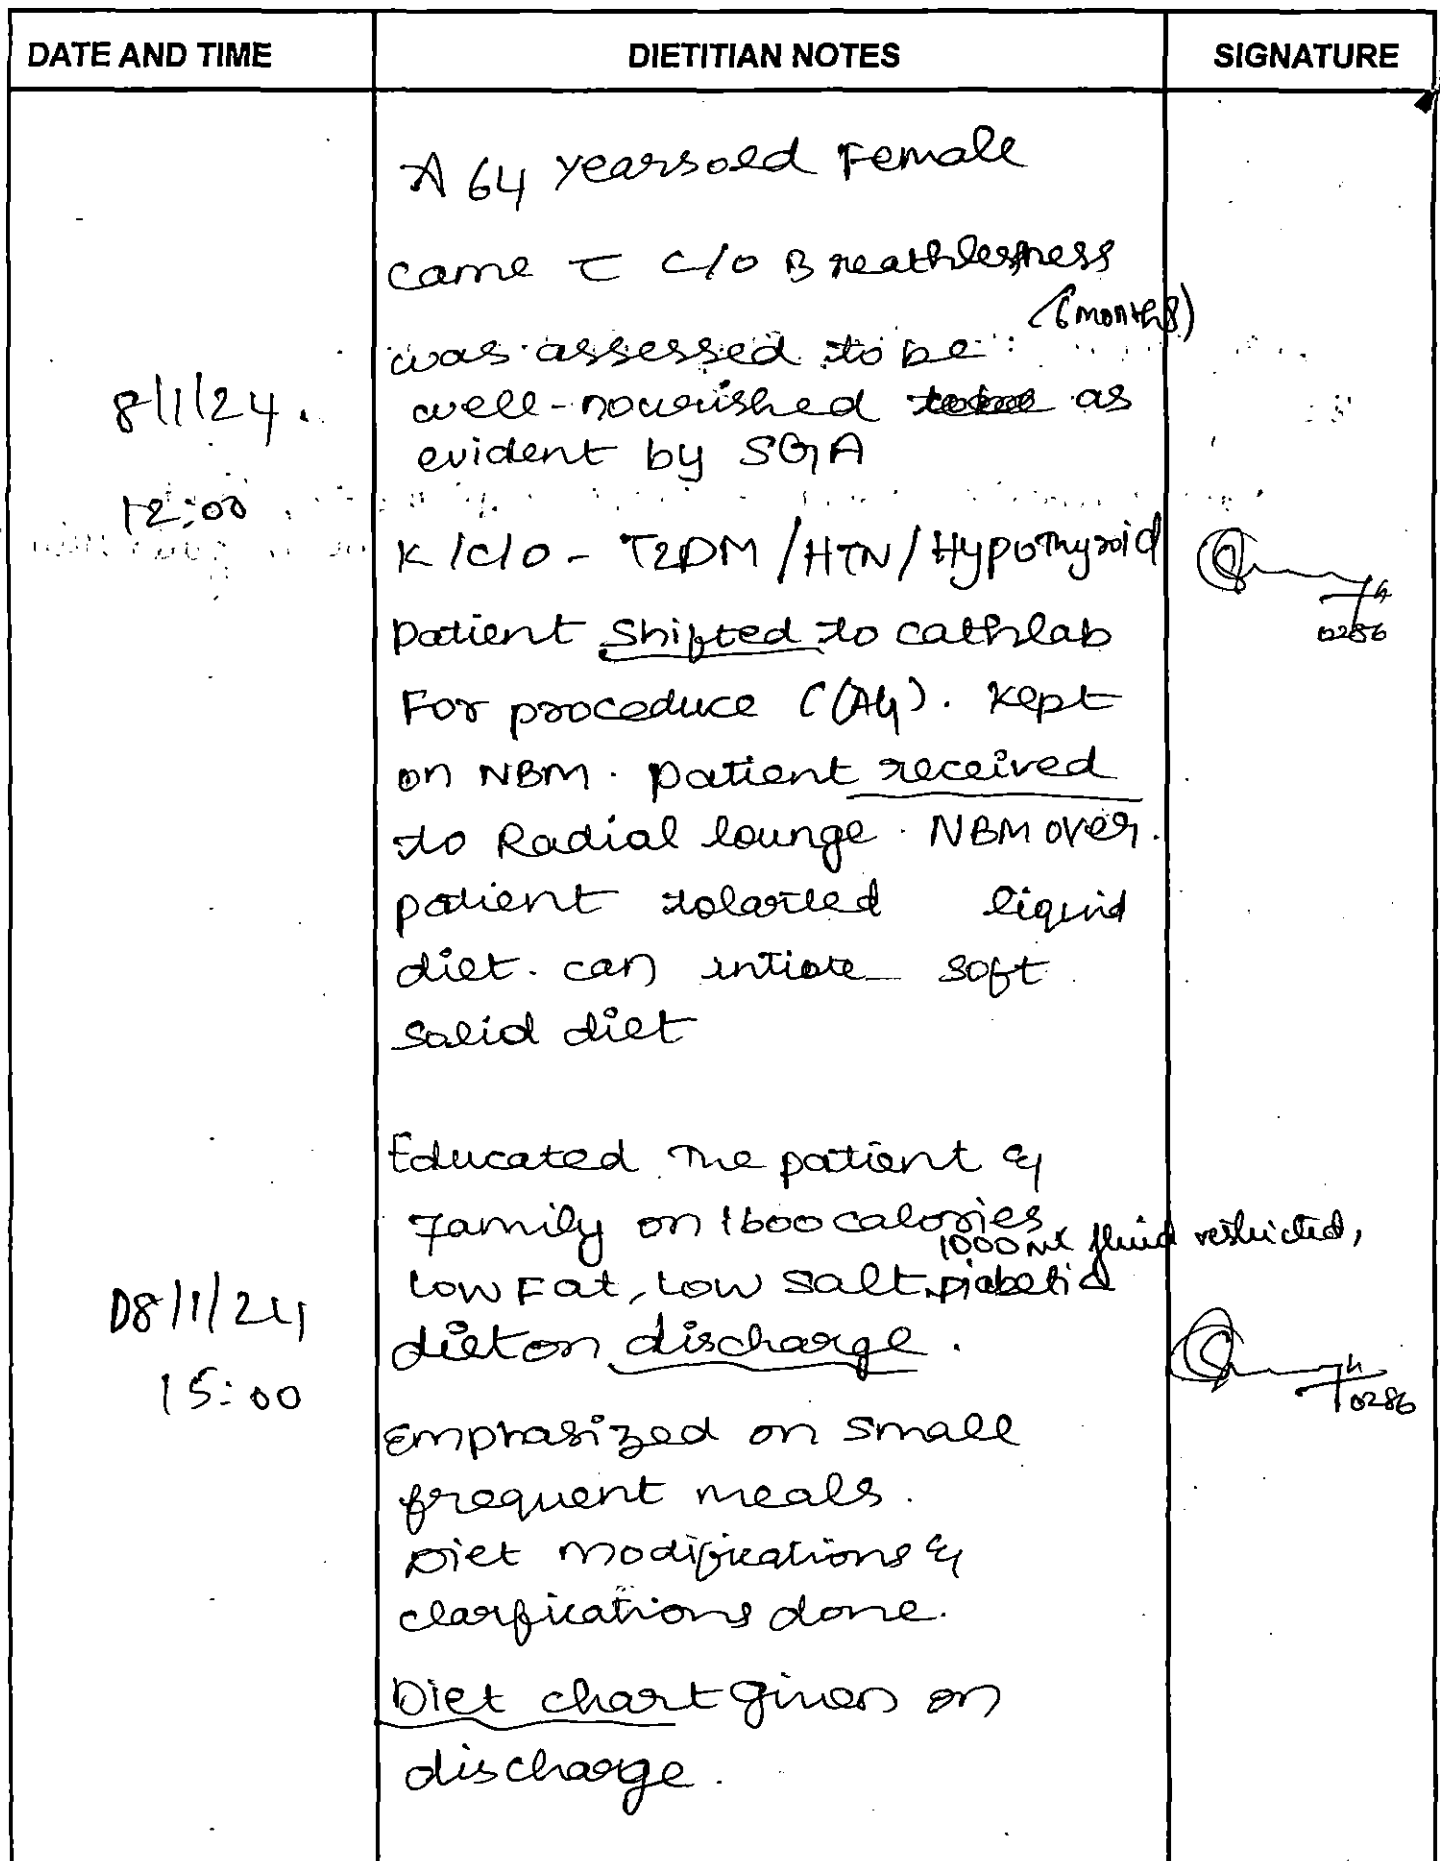 DATE AND TIME DIETITIAN NOTES SIGNATURE
A 64 years old Female
came c̄ c/o Breathlessness
(6 months)
was assessed to be
8/1/24. well-nourished as
evident by SGA
12:00
K/c/o - T2DM/HTN/Hypothyroid
patient shifted to cathlab
0286
For proceduce (CAG). Kept
on NBM. patient received
to Radial lounge. NBM over.
patient tolarted liquid
diet. can intiate soft
salid diet
Educated The patient &
Family on 1600 calories
1000 ml fluid restricted,
low Fat, low salt, Diabetic
08/1/24
diet on discharge.
15:00 0286
Emphasized on small
frequent meals.
Diet modifications &
clarfications done.
Diet chart given on
discharge.